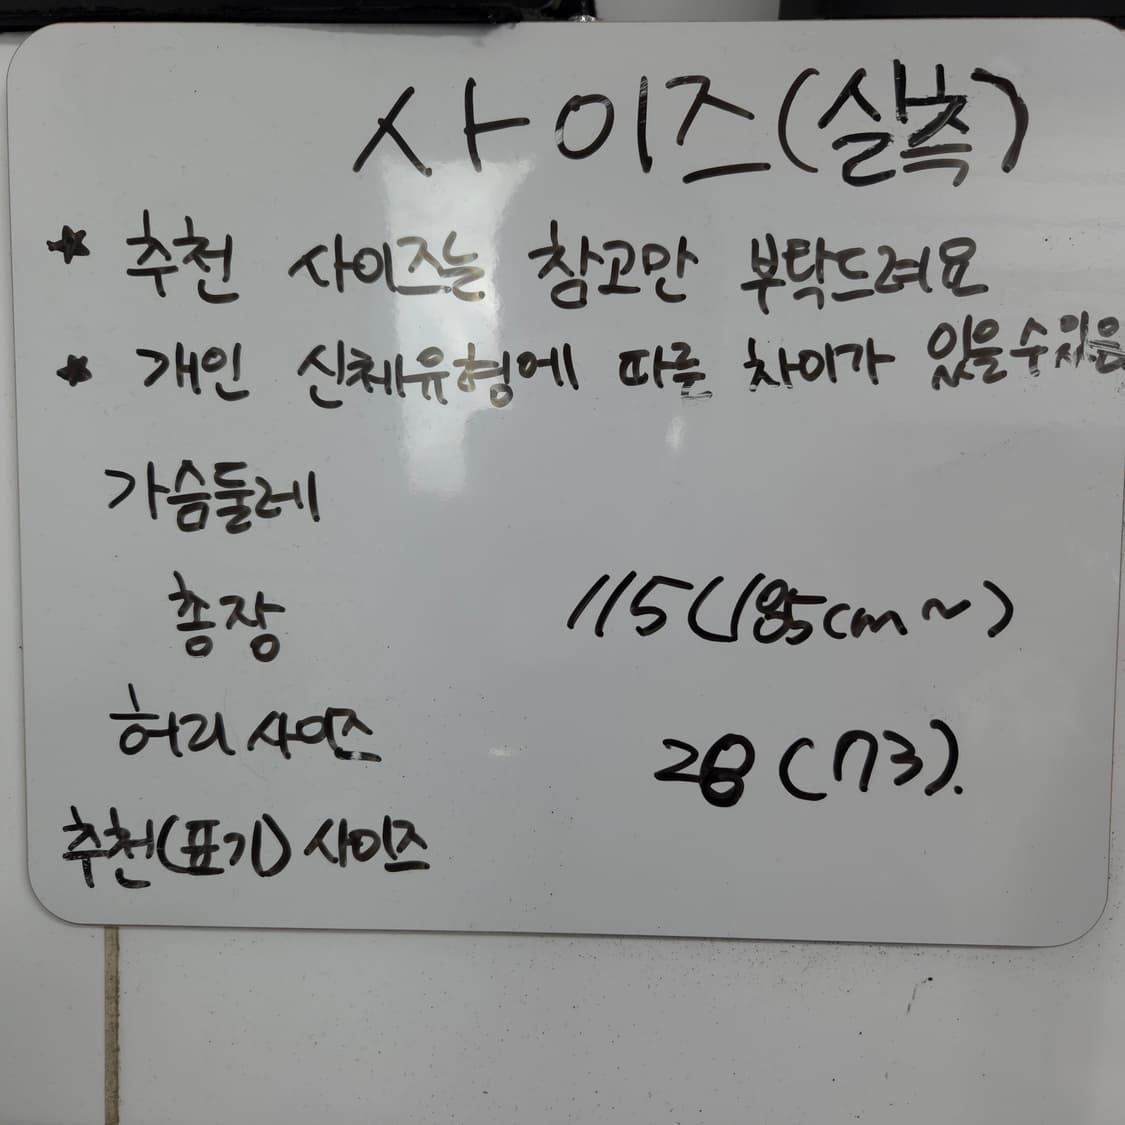 사이즈(실측)
★ 추천 사이즈는 참고만 부탁드려요
★ 개인 신체유형에 따른 차이가 있을수있음
가슴둘레
총장 115(185cm~)
허리사이즈 28(73).
추천(표기)사이즈